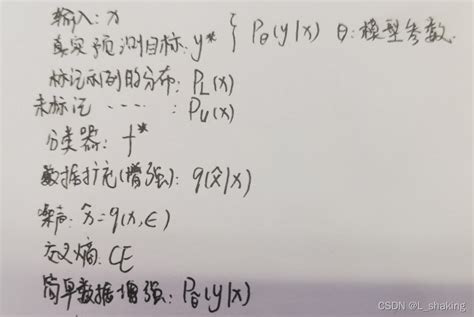 输入: x
真实预测目标: y* } Pθ(y|x) θ: 模型参数
标记示例的分布: PL(x)
未标记 ······ : PU(x)
分类器: f*
数据扩充(增强): q(x̂|x)
噪声: x̂=q(x,ϵ)
交叉熵: CE
简单数据增强: Pθ̃(y|x)
CSDN @L_shaking